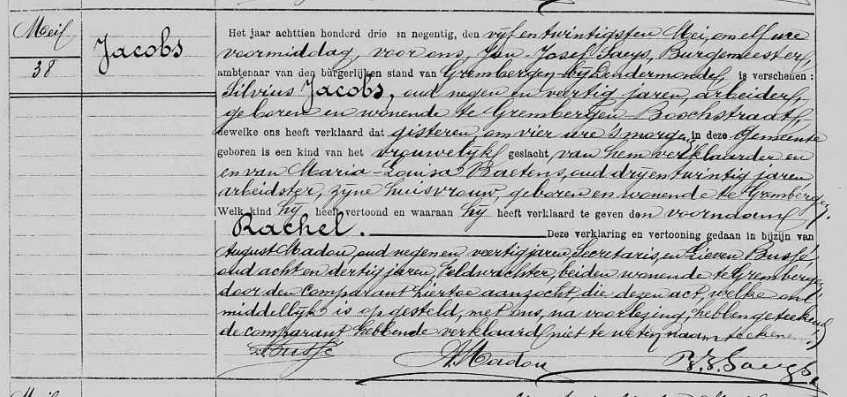 Mei
38
Jacobs
Het jaar achttien honderd drie en negentig, den vijf en twintigsten Mei, om elf ure
voormiddag, voor ons, Jan-Josef Saeys, Burgemeester,
ambtenaar van den burgerlijken stand van Grembergen bij Dendermonde, is verschenen :
Silvius Jacobs, oud negen en veertig jaren, arbeider,
geboren en wonende te Grembergen Boschstraat,
dewelke ons heeft verklaard dat gisteren, om vier ure 's morgens in deze Gemeente
geboren is een kind van het vrouwelijk geslacht van hem verklaarder en
en van Maria-Louisa Baetens, oud dryentwintig jaren
arbeidster, zyne huisvrouw, geboren en wonende te Grembergen.
Welk kind hij heeft vertoond en waaraan hij heeft verklaard te geven den voornaam
Rachel. Deze verklaring en vertooning gedaan in bijzijn van
August Madou, oud negen en veertig jaren, Secretaris, en Lieven Bussé
oud acht en dertig jaren, Veldwachter, beiden wonende te Grembergen
door den Comparant hiertoe aanzocht, die dezen act, welke onmiddellijk
is opgesteld, met ons, na voorlezing, hebben geteekend
de comparant hebbende verklaard niet te weten naamteekenen
Bussé A. Madou J. J. Saeys